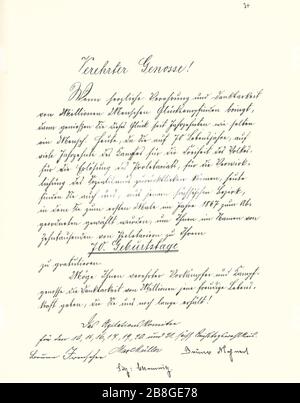 Verehrter Genosse!
Wenn herzliche Verehrung und Dankbarkeit
von Millionen Menschen Glücksempfinden bringt,
dann genießen Sie dieses Glück seit Jahrzehnten wie selten
ein Mensch. Heute, da Sie auf 70 Lebensjahre, auf
viele Jahrzehnte des Kampfes für die Freiheit des Volkes
für die Erlösung des Proletariats, für die Verwirk-
lichung des Sozialismus zurückblicken können, heute
finden Sie auch uns, aus jenem sächsischen Bezirk,
in dem Sie zum ersten Male im Jahre 1867 zum Ab-
geordneten gewählt wurden, um Ihnen im Namen von
Zehntausenden von Proletariern zu Ihrem
70. Geburtstage
zu gratulieren.
Möge Ihnen verehrter Vorkämpfer und Kampf-
genosse, die Dankbarkeit von Millionen jene freudige Lebens-
kraft geben, die Sie uns noch lange erhält!
Das Agitationskomitee
für den 15, 16, 17, 18, 19, 20, und 21. sächs. Reichstagswahlkreis.
alamy
Image ID: 2H8GE78
www.alamy.com